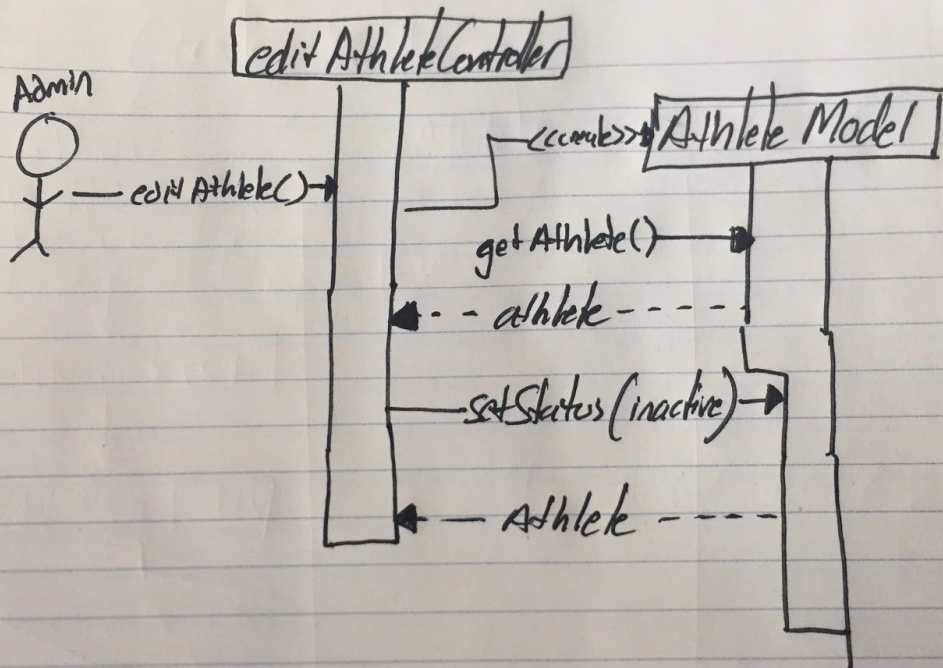 editAthleteController
Admin
Athlete Model
<<create>>
editAthlete()
getAthlete()
athlete
setStatus(inactive)
Athlete